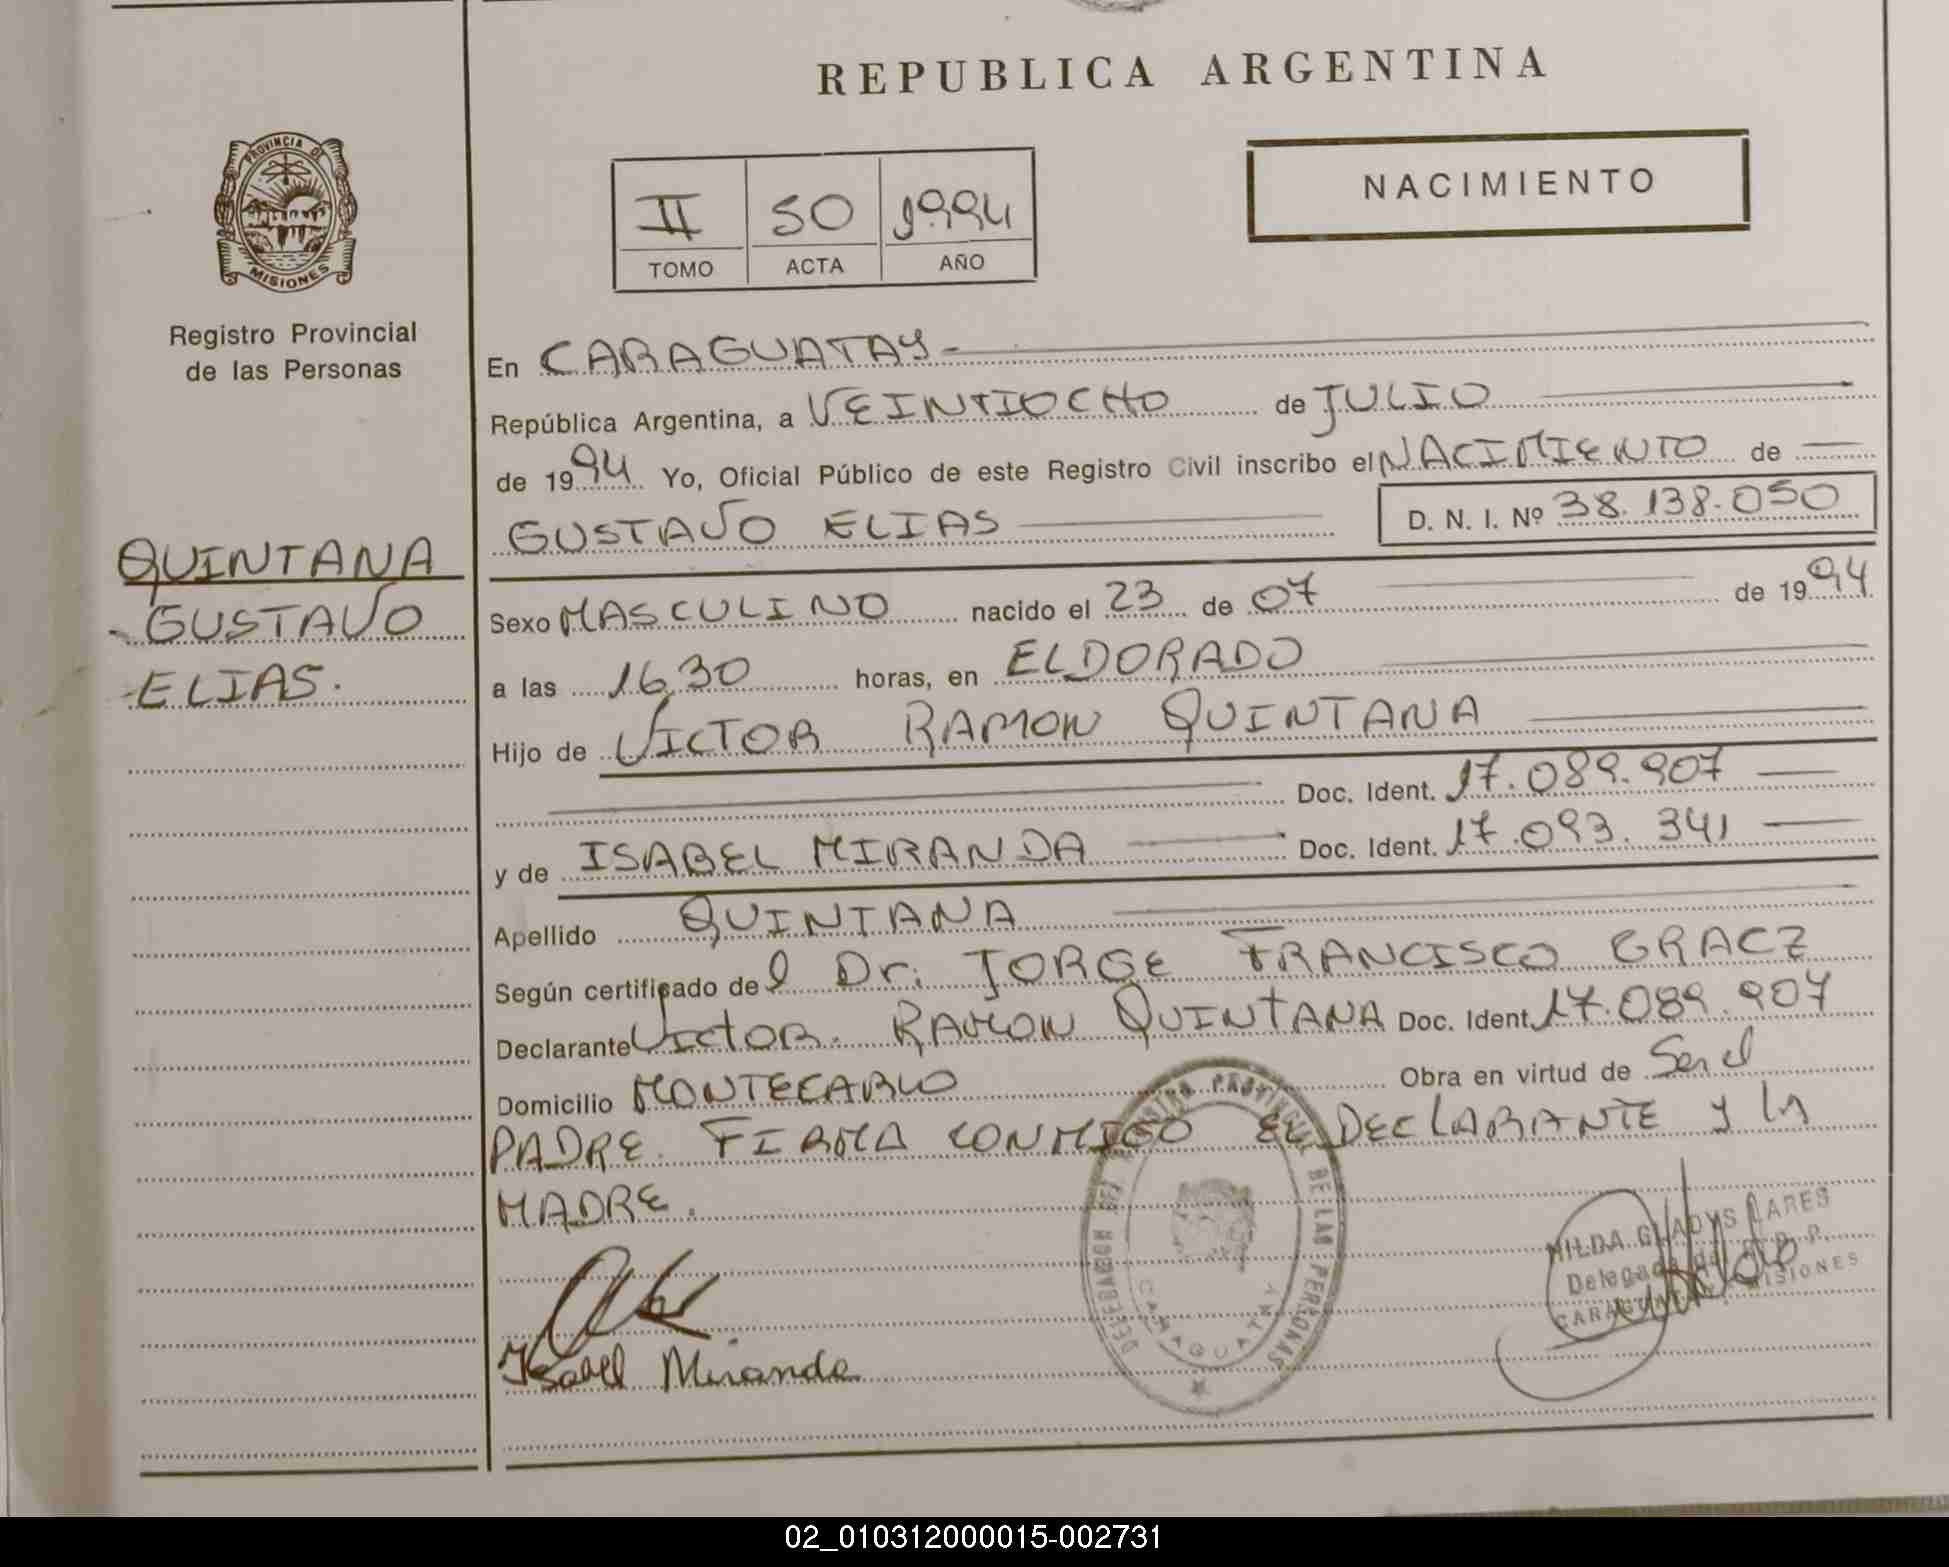 REPUBLICA ARGENTINA
PROVINCIA DE
MISIONES
Registro Provincial
de las Personas
II 50 1994
TOMO ACTA AÑO
NACIMIENTO
QUINTANA
GUSTAVO
ELIAS.
En CARAGUATAY-
República Argentina, a VEINTIOCHO de JULIO
de 1994 Yo, Oficial Público de este Registro Civil inscribo el NACIMIENTO de
GUSTAVO ELIAS D. N. I. Nº 38.138.050
Sexo MASCULINO nacido el 23 de 07 de 1994
a las 16,30 horas, en ELDORADO
Hijo de VICTOR RAMON QUINTANA
Doc. Ident. 17.089.907
y de ISABEL MIRANDA Doc. Ident. 17.093.341
Apellido QUINTANA
Según certificado del Dr. JORGE FRANCISCO GRACZ
Declarante VICTOR. RAMON QUINTANA Doc. Ident. 17.089.907
Domicilio MONTECARLO Obra en virtud de Ser el
PADRE. FIRMA CONMIGO EL DECLARANTE y LA
MADRE.
DELEGACION DEL REGISTRO PROVINCIAL DE LAS PERSONAS
CARAGUATAY
HILDA GLADYS LARES
Delegada de R. P. P.
CARAGUATAY MISIONES
Isabel Miranda
02_010312000015-002731